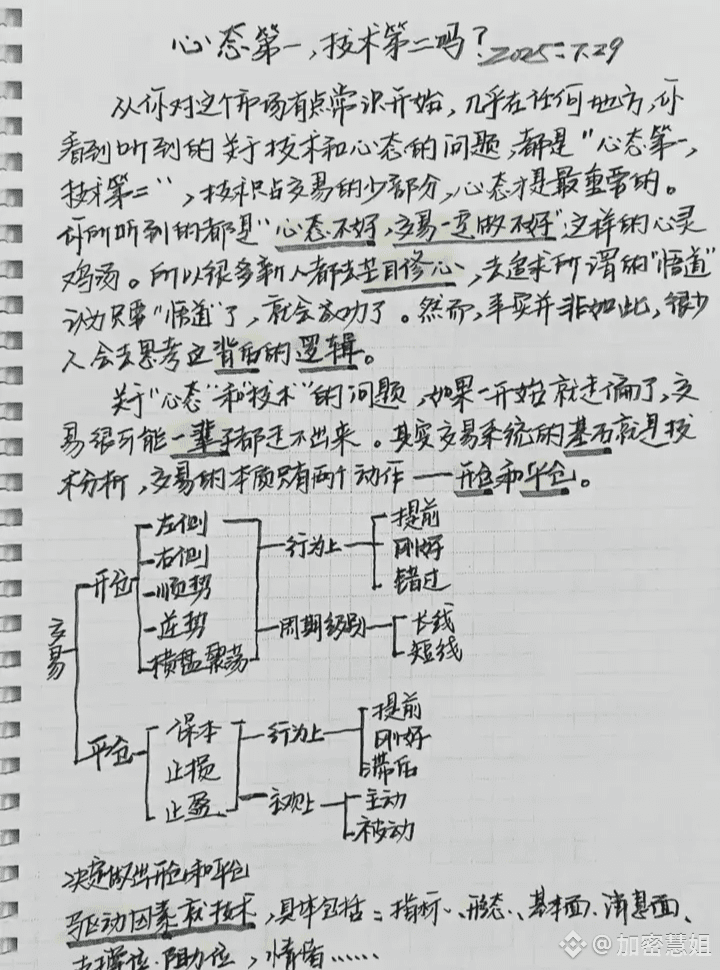 心态第一,技术第二吗? 2025.7.29
从你对这个市场有点常识开始,几乎在任何地方,你
看到听到的关于技术和心态的问题,都是"心态第一,
技术第二",技术只占交易的少部分,心态才是最重要的。
你所听到的都是"心态不好,交易一定做不好"这样的心灵
鸡汤。所以很多新人都去盲目修心,去追求所谓的"悟道"
认为只要"悟道"了,就会成功了。然而,事实并非如此,很少
人会去思考这背后的逻辑。
关于"心态"和"技术"的问题,如果一开始就走偏了,交
易很可能一辈子都走不出来。其实交易系统的基石就是技
术分析,交易的本质只有两个动作——开仓和平仓。
交易
开仓
左侧
右侧
顺势
逆势
横盘震荡
行为上
提前
刚好
错过
周期级别
长线
短线
平仓
保本
止损
止盈
行为上
提前
刚好
滞后
主观上
主动
被动
决定做出开仓和平仓
驱动因素就技术,具体包括:指标、形态、基本面、消息面、
支撑位、阻力位,情绪……
@加密慧姐